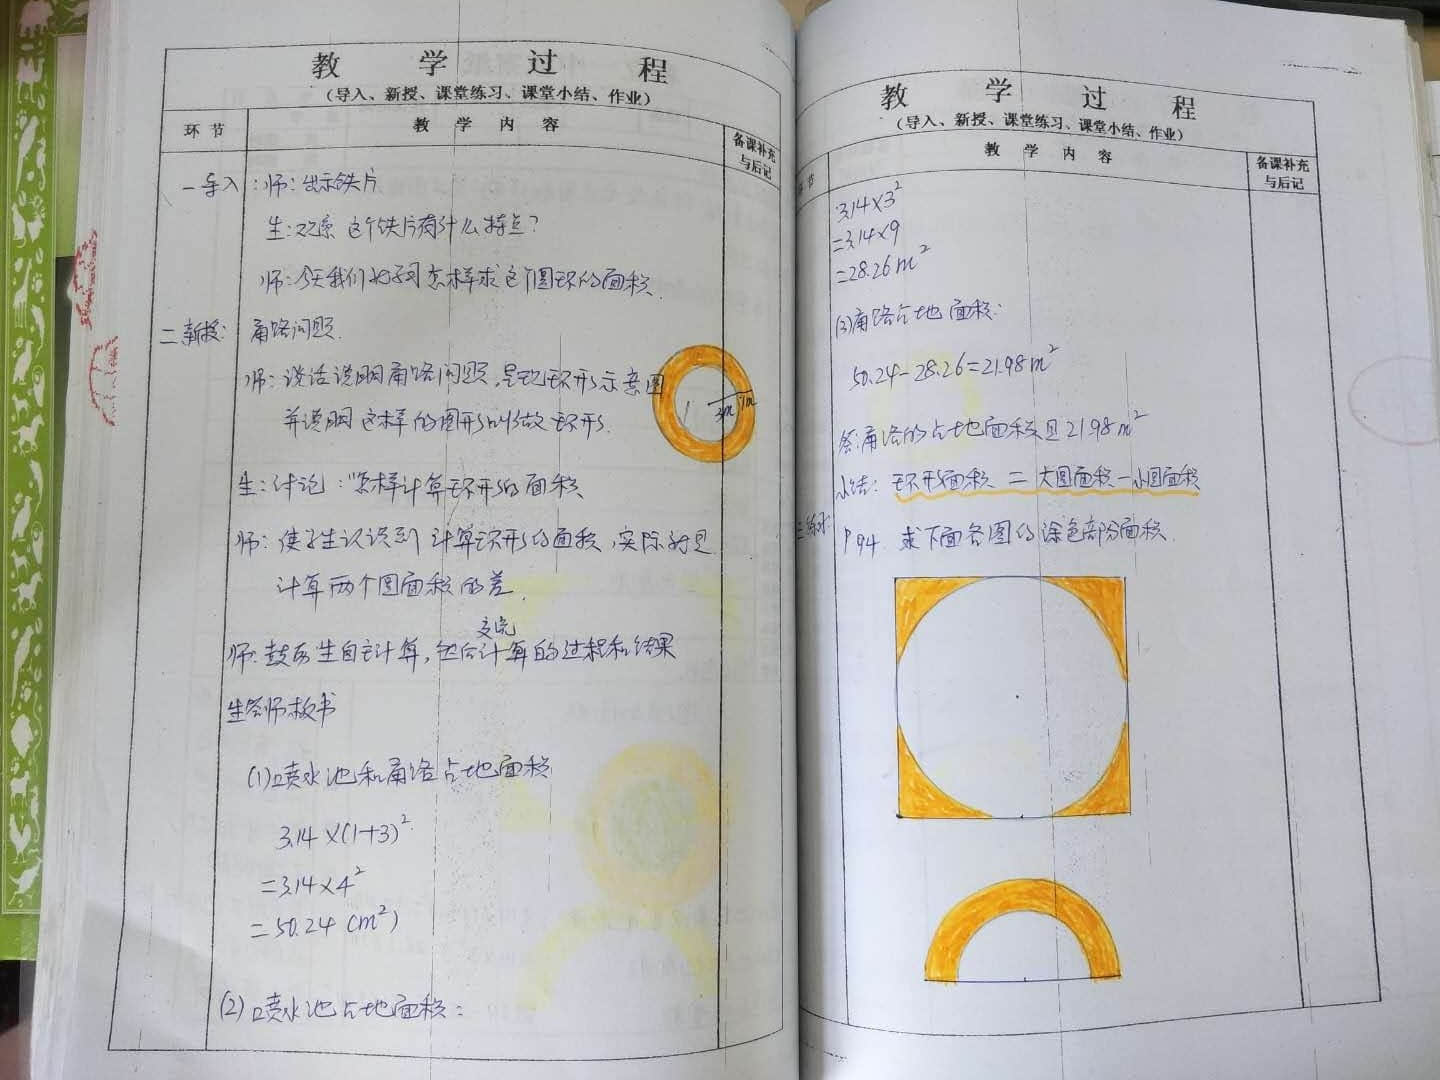 教 学 过 程
（导入、新授、课堂练习、课堂小结、作业）
环 节
教 学 内 容
备课补充
与后记
一导入：师：出示铁片
生：观察这个铁片有什么特点？
师：今天我们学习怎样求这个圆环的面积.
二新授：甬路问题.
师：谈话说明甬路问题，呈现环形示意图
并说明这样的图形叫做环形.
3m 1m
生：讨论：怎样计算环形的面积
师：使学生认识到计算环形的面积，实际就是
计算两个圆面积的差.
交流
师：鼓励生自主计算，然后计算的过程和结果
生答师板书
(1)喷水池和甬路占地面积
3.14×(1+3)²
=3.14×4²
=50.24 (m²)
(2)喷水池占地面积：
教 学 过 程
（导入、新授、课堂练习、课堂小结、作业）
节
教 学 内 容
备课补充
与后记
3.14×3²
=3.14×9
=28.26m²
(3)甬路占地面积：
50.24-28.26=21.98m²
答：甬路的占地面积是21.98m²
小结：环形面积=大圆面积-小圆面积
三练习：P94. 求下面各图的涂色部分面积.